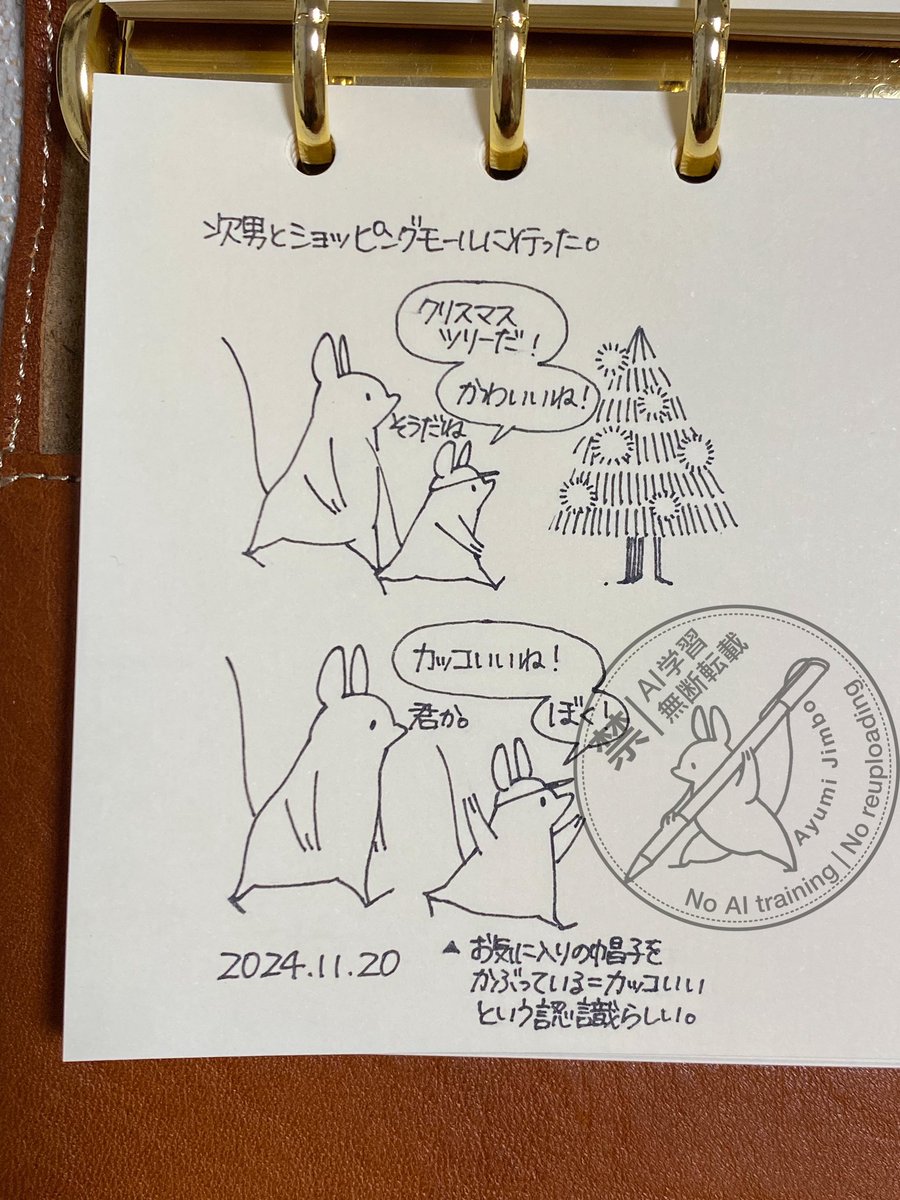 次男とショッピングモールに行った。
クリスマス
ツリーだ!
かわいいね!
そうだね
カッコいいね!
ぼく!
君か。
2024.11.20
▲ お気に入りの帽子を
かぶっている=カッコいい
という認識らしい。
禁|AI学習
無断転載
Ayumi Jimbo
No AI training | No reuploading